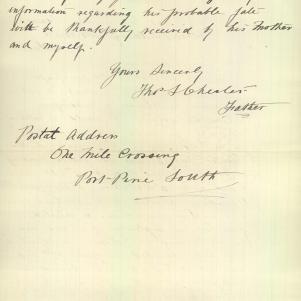 information regarding his probable fate
will be thankfully received by his Mother
and myself.
Yours Sincerely
Thos S Chester
Father
Postal Address
One Mile Crossing
Port-Pirie South